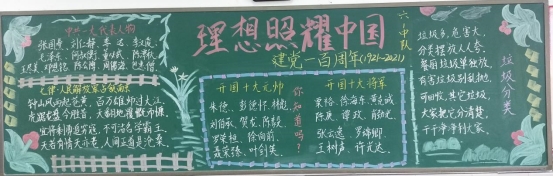 理想照耀中国
建党一百周年(1921-2021)
六·1中队
中共一大代表人物
张国焘 刘仁静 李达 李汉俊
毛泽东 何叔衡 董必武 陈潭秋
王尽美 邓恩铭 陈公博 周佛海 包惠僧
七律·人民解放军占领南京
钟山风雨起苍黄,百万雄师过大江。
虎踞龙盘今胜昔,天翻地覆慨而慷。
宜将剩勇追穷寇,不可沽名学霸王。
天若有情天亦老,人间正道是沧桑。
开国十大元帅
朱德、彭德怀、林彪、
刘伯承 贺龙、陈毅、
罗荣桓、徐向前、
聂荣臻、叶剑英、
你知道吗?
开国十大将军
粟裕、徐海东、黄克诚
陈赓、谭政、萧劲光、
张云逸 罗瑞卿、
王树声、许光达、
垃圾分类
垃圾多,危害大,
分类摆放人人夸,
餐厨垃圾单独放,
有害垃圾别乱抛,
可回收,其它垃圾,
大家把它分清楚,
干干净净利大家。